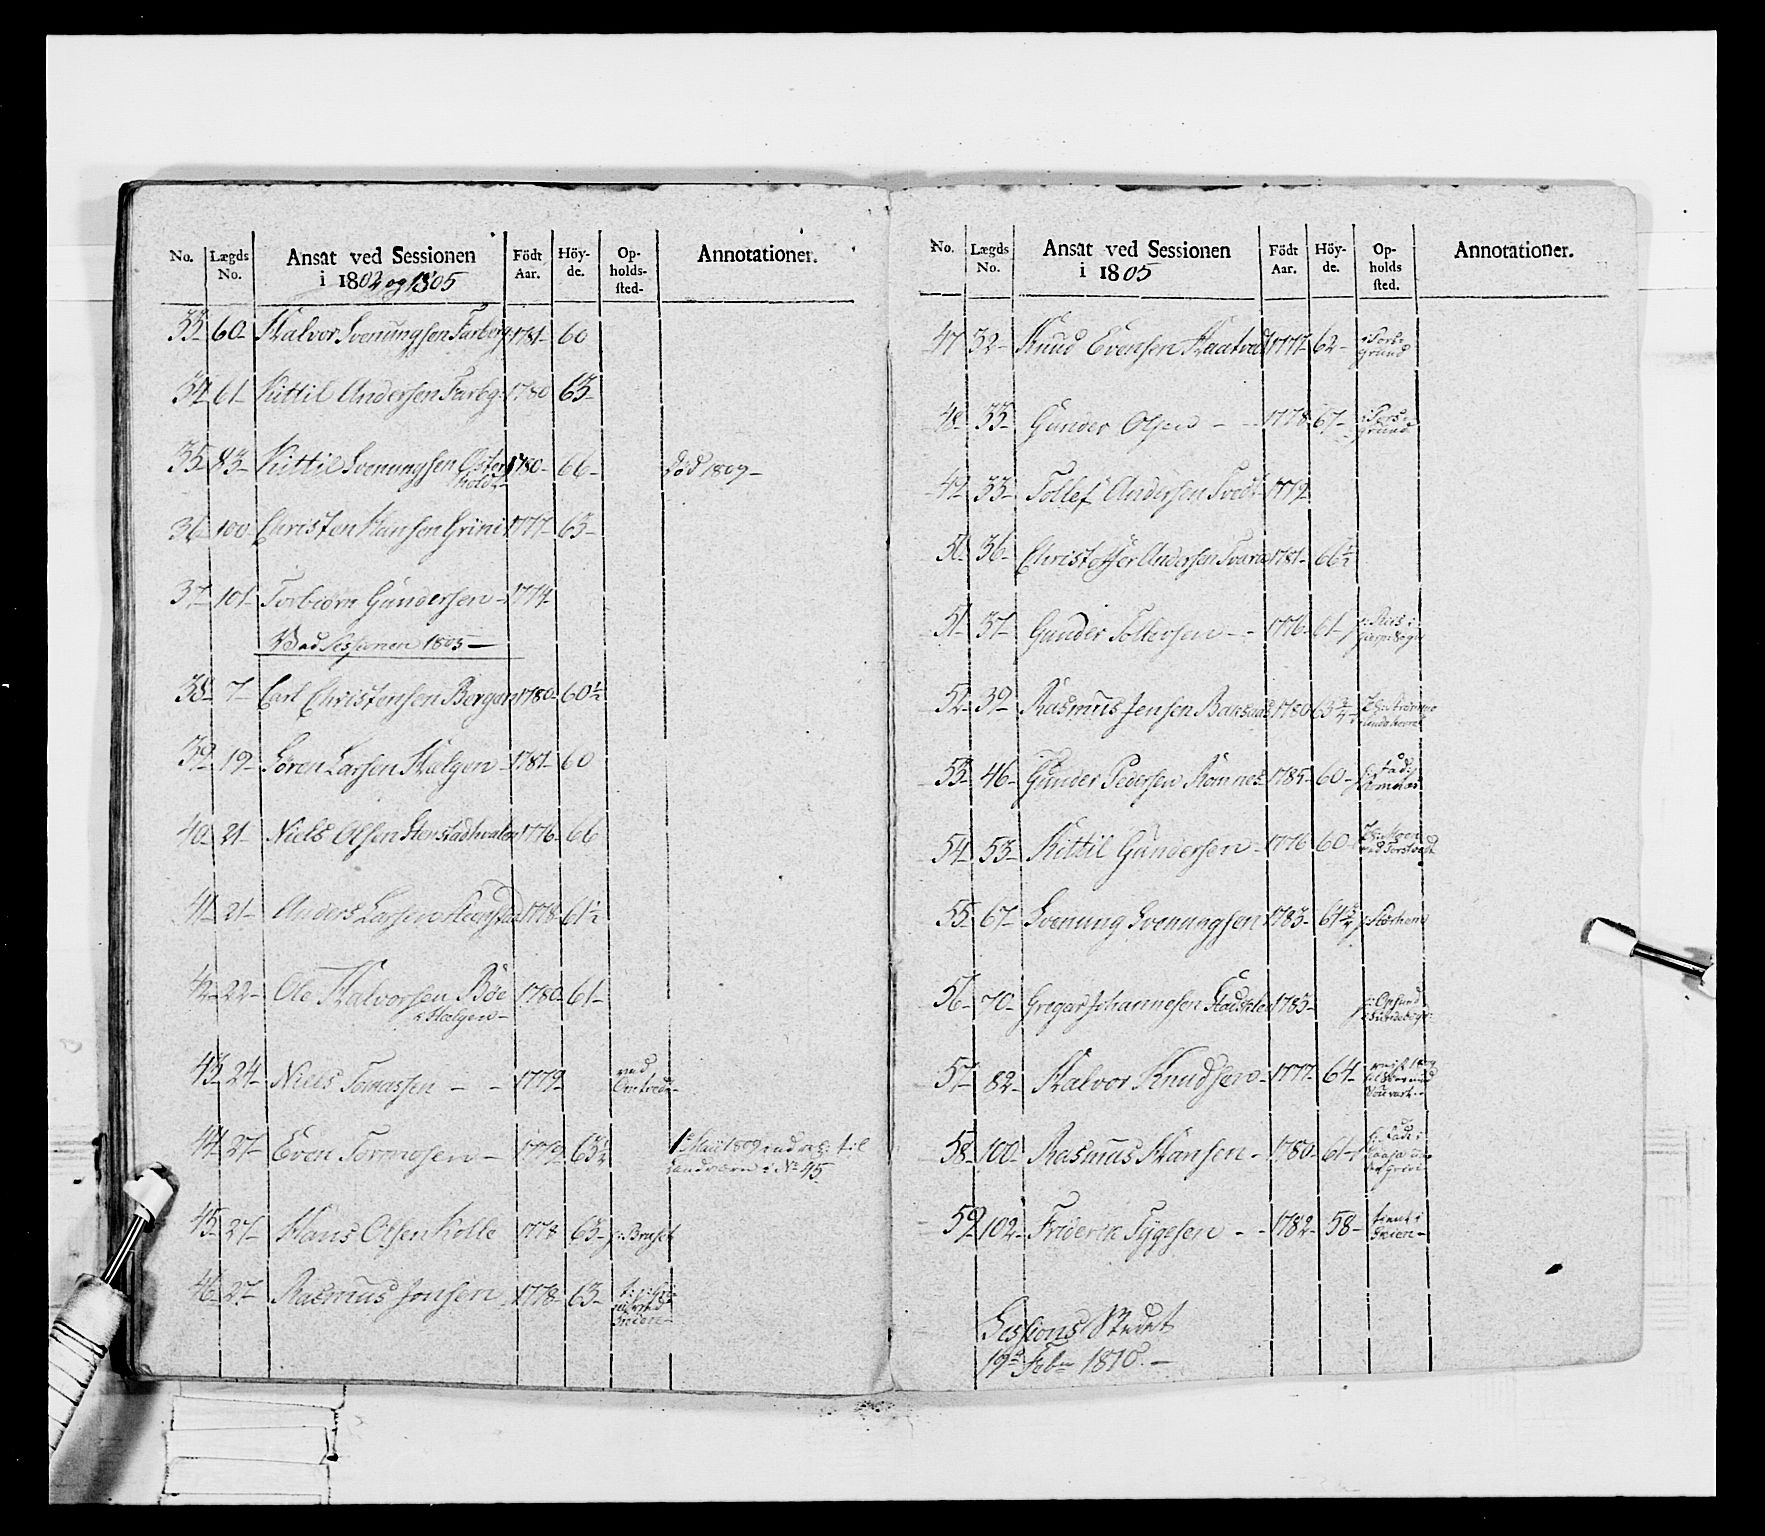 No. Lægds No. Ansat ved Sessionen i 1802 og 1805 Födt Aar. Höyde. Opholdssted. Annotationer.
33 60 Halvor Svenungsen Farberg 1781 60
34 61 Kittil Andersen Farbg 1780 63
35 83 Kittil Svenungsen Osterholdt 1780 66 död 1809
36 100 Christen Hansen Grini 1777 63
37 101 Torbiörn Gundersen 1774
Ved Sessionen 1805
38 7 Carl Christensen Bergan 1780 60½
39 19 Sören Larsen Hælgen 1781 60
40 21 Niels Olsen Stenstadhvalen 1776 66
41 21 Anders Larsen Steenstad 1778 61½
42 22 Ole Halvorsen Böe 1780 61
i Hælgen
43 24 Niels Tomassen 1779 ved Omtvedt
44 27 Even Tormosen 1779 63½ 1809 til Landværn i No 45
45 27 Hans Olsen Kolle 1778 63
46 27 Rasmus Jonsen 1778 63
No. Lægds No. Ansat ved Sessionen i 1805 Födt Aar. Höyde. Opholdssted. Annotationer.
47 32 Knud Evensen Haatvedt 1777 62 i Porsgrund
48 33 Gunder Olsen 1778 67 i Porsgrund
49 33 Tollef Andersen Tvedt 1779
50 36 Christoffer Andersen Tvara 1781 66½
51 37 Gunder Tollevsen 1776 61
52 39 Rasmus Jensen Baksaas 1780
53 46 Gunder Pedersen Romnes 1785 60
54 53 Kittil Gundersen 1776 60
55 67 Svenung Svenungsen 1783
56 70 Gregar Johannesen 1783
57 82 Halvor Knudsen 1777 64
58 100 Rasmus Hansen 1780 61
59 102 Friderik Tygesen 1782 58 tient i Skien
Sessions Rettet
19de Febr 1810.